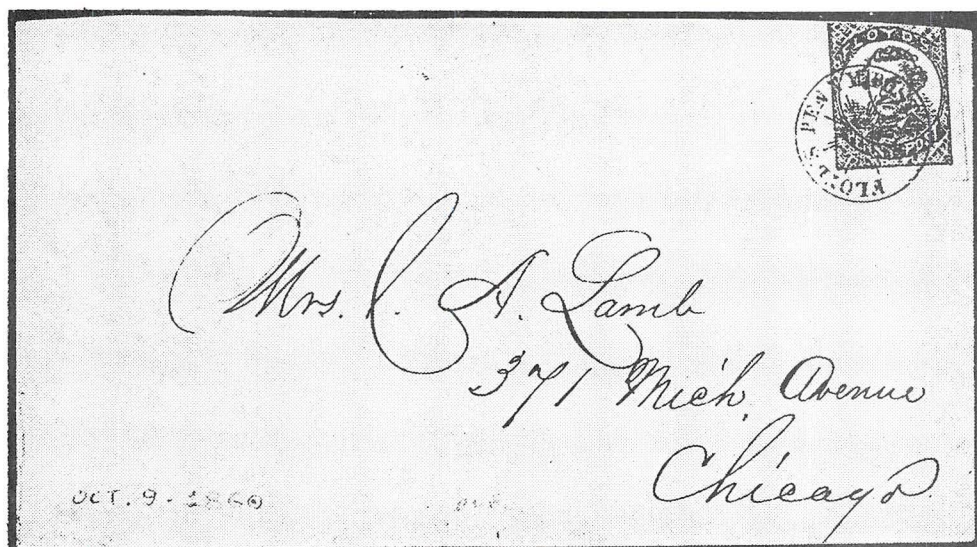 FLOYD'S
FLOYD'S PENNY
Mrs. C. A. Lamb
371 Mich. Avenue
Chicago.
OCT. 9. 1860